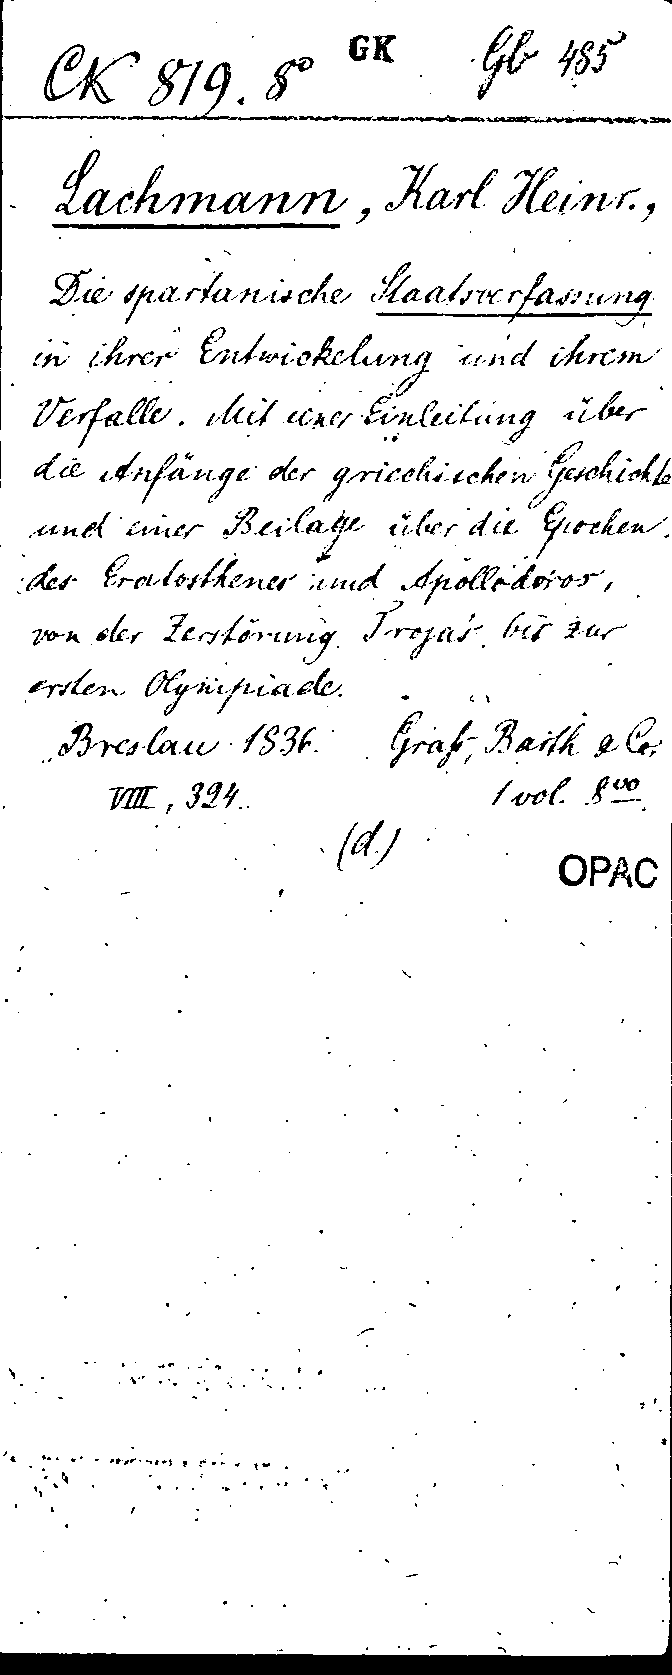 CK 819. 8° GK Gb 485
Lachmann, Karl Heinr.,
Die spartanische Staatsverfassung
in ihrer Entwickelung und ihrem
Verfalle. Mit einer Einleitung über
die Anfänge der griechischen Geschichte
und einer Beilage über die Epochen
des Eratosthenes und Apollodoros,
von der Zerstörung Troja's bis zur
ersten Olympiade.
Breslau 1836. Graß, Barth & Co.
VIII, 324. 1 vol. 8vo
(d.)
OPAC